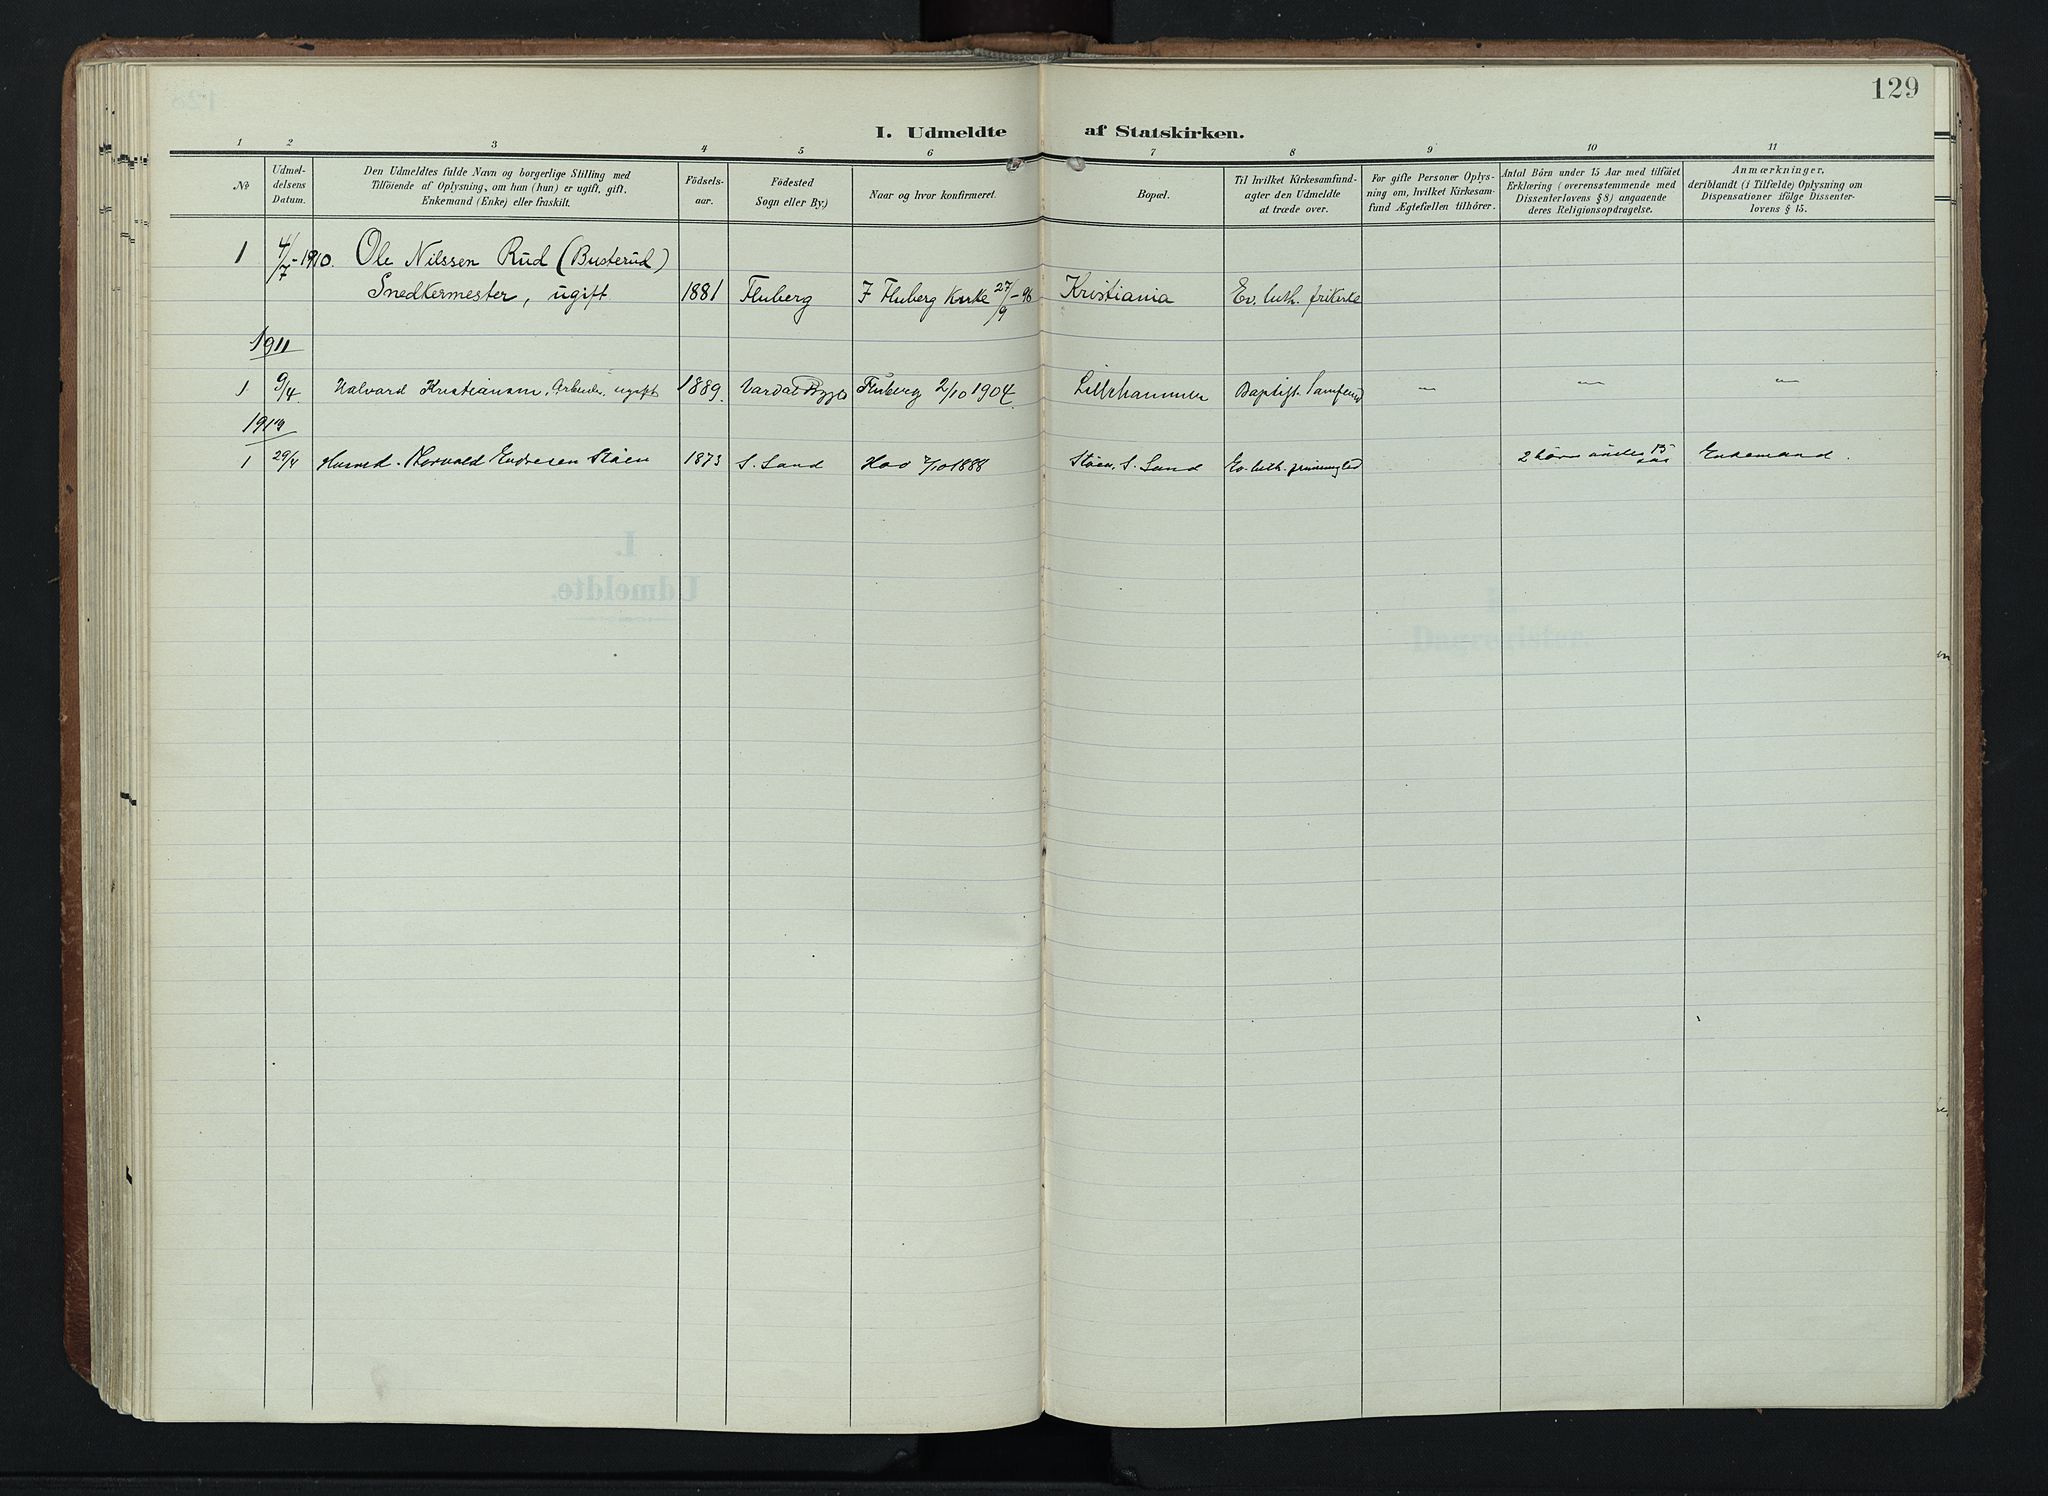 129
I. Udmeldte af Statskirken.
1 2 3 4 5 6 7 8 9 10 11
No
Udmel-
delsens
Datum.
Den Udmeldtes fulde Navn og borgerlige Stilling med
Tilföiende af Oplysning, om han (hun) er ugift, gift,
Enkemand (Enke) eller fraskilt.
Födsels-
aar.
Födested
Sogn eller By.)
Naar og hvor konfirmeret.
Bopæl.
Til hvilket Kirkesamfund-
agter den Udmeldte
at træde over.
For gifte Personer Oplys-
ning om, hvilket Kirkesam-
fund Ægtefællen tilhörer.
Antal Börn under 15 Aar med tilföiet
Erklæring (overensstemmende med
Dissenterlovens § 8) angaaende
deres Religionsopdragelse.
Anmærkninger,
deriblandt (i Tilfælde) Oplysning om
Dispensationer ifölge Dissenter-
lovens § 15.
1 4/7-1910. Ole Nilssen Rud (Busterud)
Snedkermester, ugift 1881 Fluberg I Fluberg Kirke 27/9-96 Kristiania Ev. luth. frikirke
1911
1 9/4. Halvard Kristiansen, Arbeider, ugift 1889. Vardal Fluberg 2/10 1904. Lillehammer Baptist. Samfund " " "
1 29/4 Thorvald Endresen Støen 1873 S. Land 1888 Støen, S. Land Ev. luth. 2 børn under 15 aar Enkemand.
I.
Udmeldte.
Dagregister.